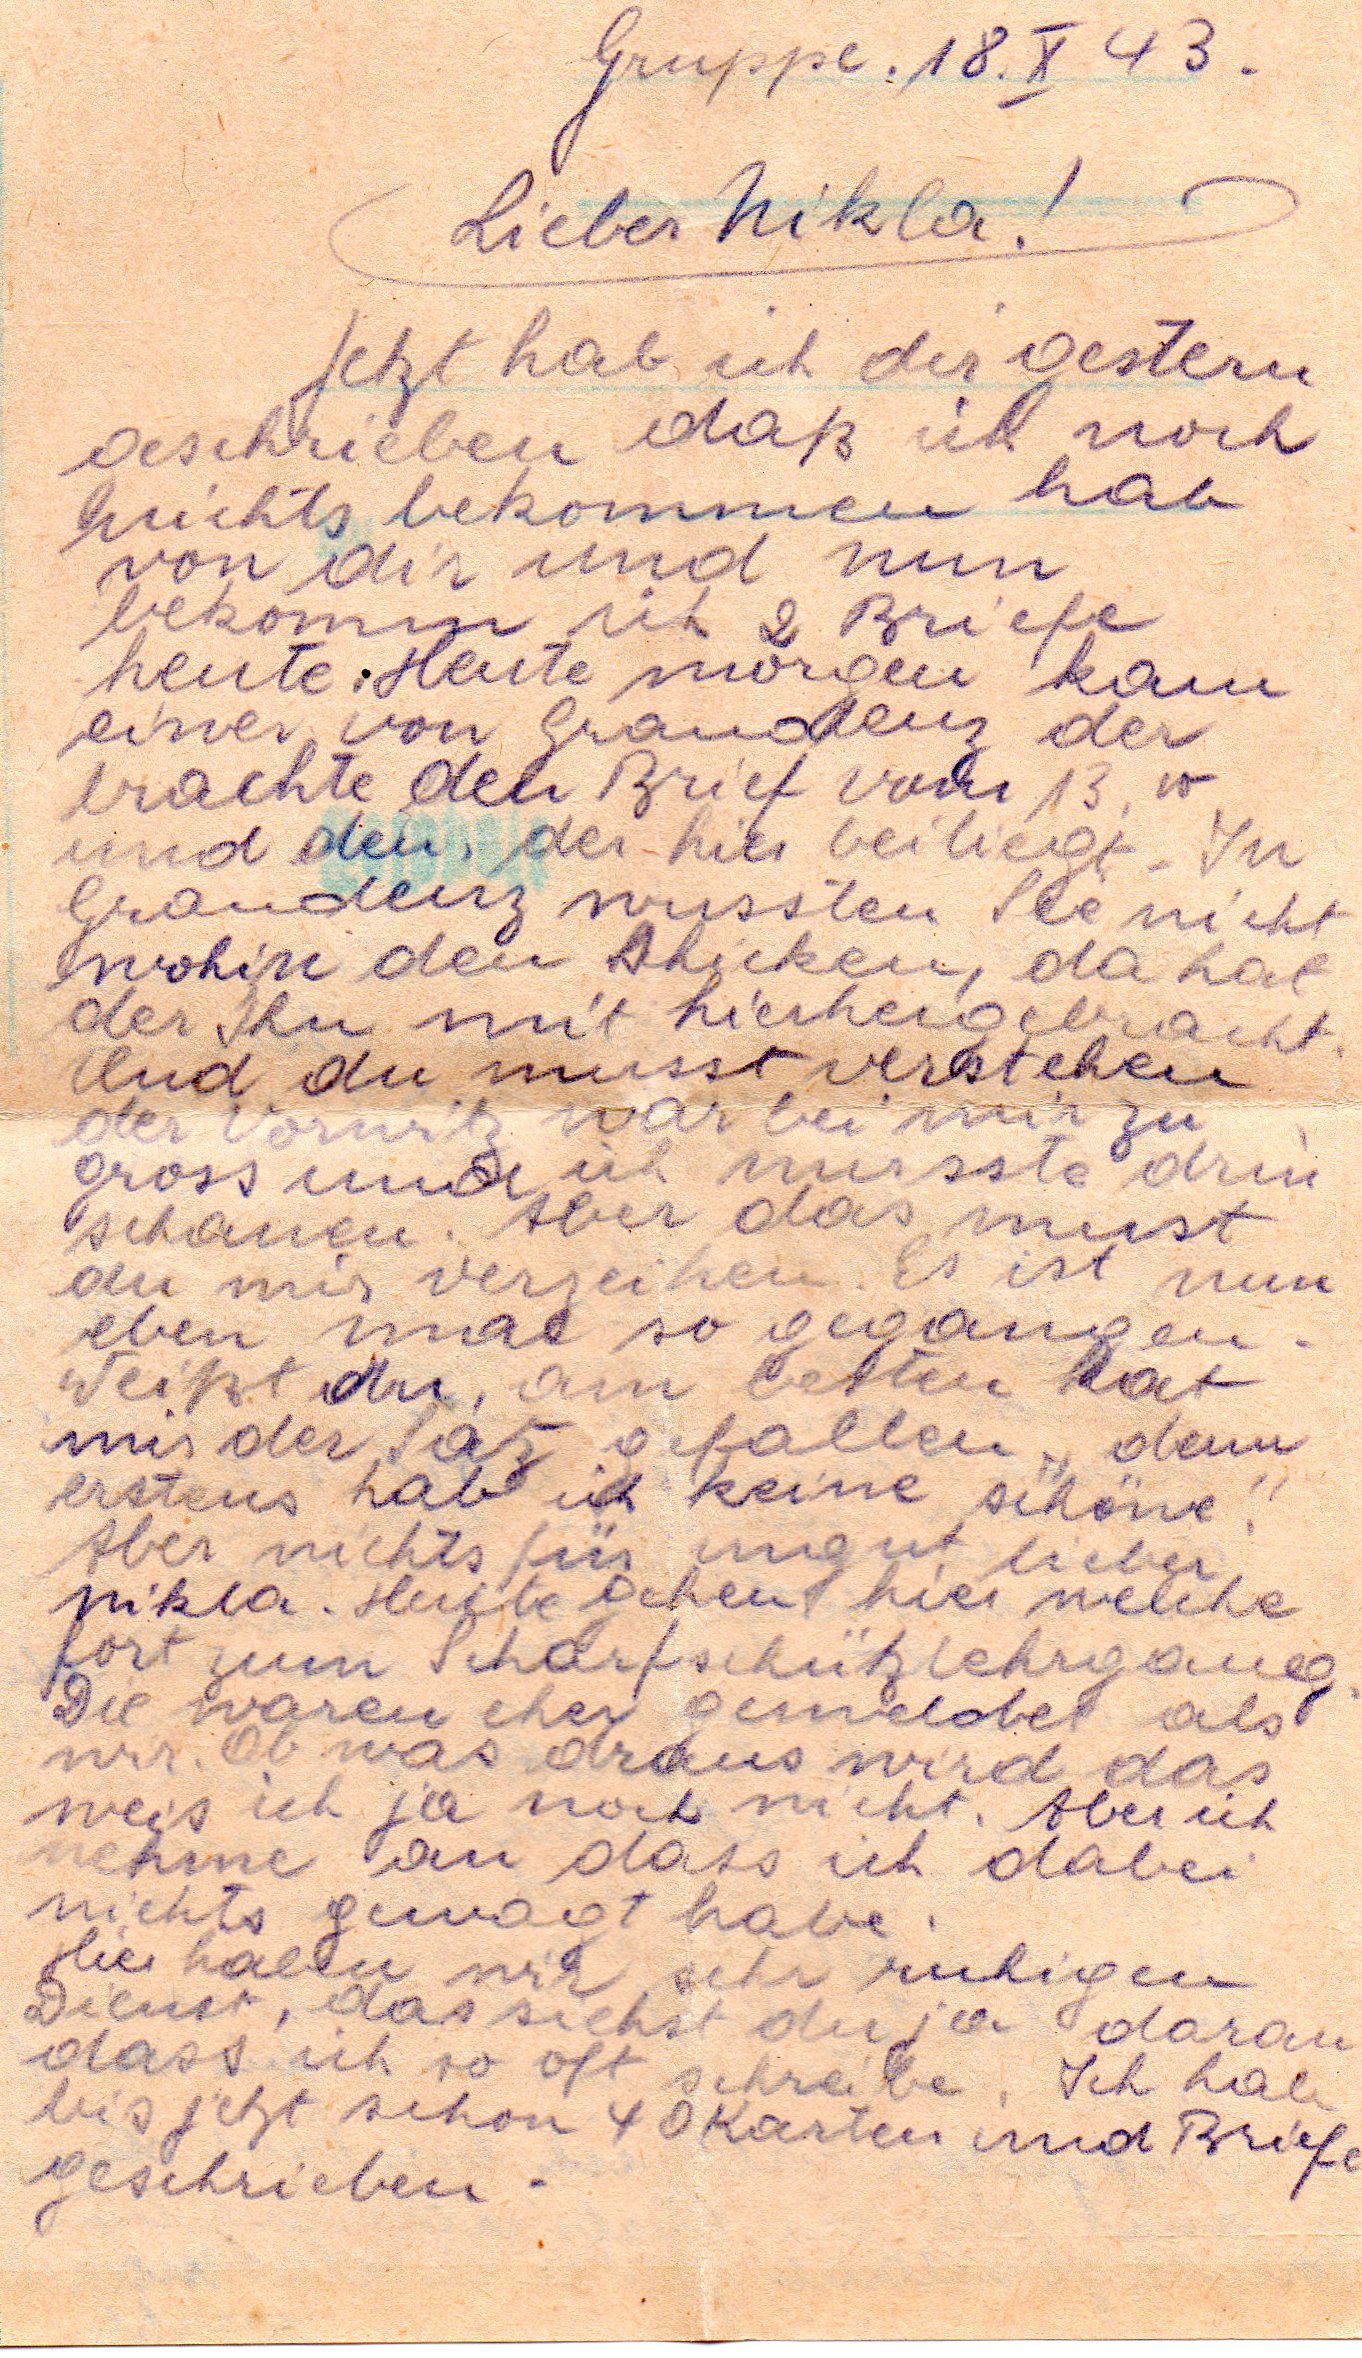 Gruppe. 18. X 43.
Lieber Nikla!
Jetzt hab ich dir gestern
geschrieben daß ich noch
nichts bekommen hab
von dir und nun
bekomm ich 2 Briefe
heute. Heute morgen kam
einer von Graudenz der
brachte den Brief vom 13. 10
und den, der hier beiliegt. In
Graudenz wussten Sie nicht
wohin den schicken, da hat
der Ihn mit hierhergebracht.
Und du musst verstehen
der Vorwitz war bei mir zu
gross und ich musste drin
schauen. Aber das must
du mir verzeihen. Es ist nun
eben mal so gegangen.
Weißt du, am besten hat
mir der Satz gefallen „denn
erstens hab ich keine schöne".
Aber nichts für ungut lieber
Nikla. Heute gehen hier welche
fort zum Scharfschützlehrgang.
Die waren eher gemeldet als
wir. Ob was draus wird das
weis ich ja noch nicht. Aber ich
nehme an dass ich dabei
nichts gewagt habe.
Hier haben wir sehr ruhigen
Dienst, das siehst du ja daran
dass ich so oft schreibe. Ich hab
bis jetzt schon 40 Karten und Briefe
geschrieben.